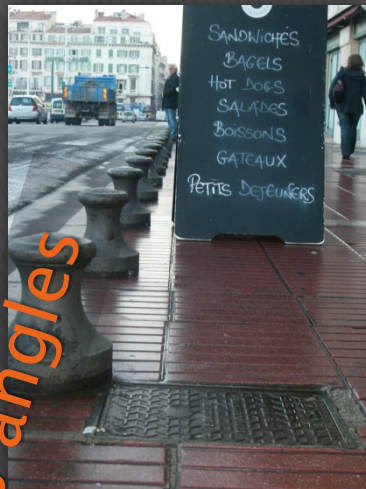 SANDWICHES
BAGELS
HOT DOGS
SALADES
BOISSONS
GATEAUX
PETITS DEJEUNERS
angles